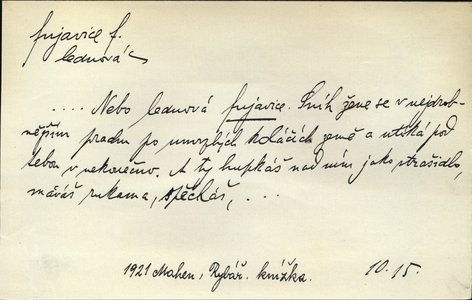 fujavice f.
lednová
.... Nebo lednová fujavice. Sníh žene se v nejdrob-
nějším prachu po umrzlých koláčích země a utíká pod
tebou v nekonečno. A ty hupkáš nad ním jako strašidlo,
máváš rukama, spěcháš, ...
1921 Mahen, Rybář. knížka. 10.15.